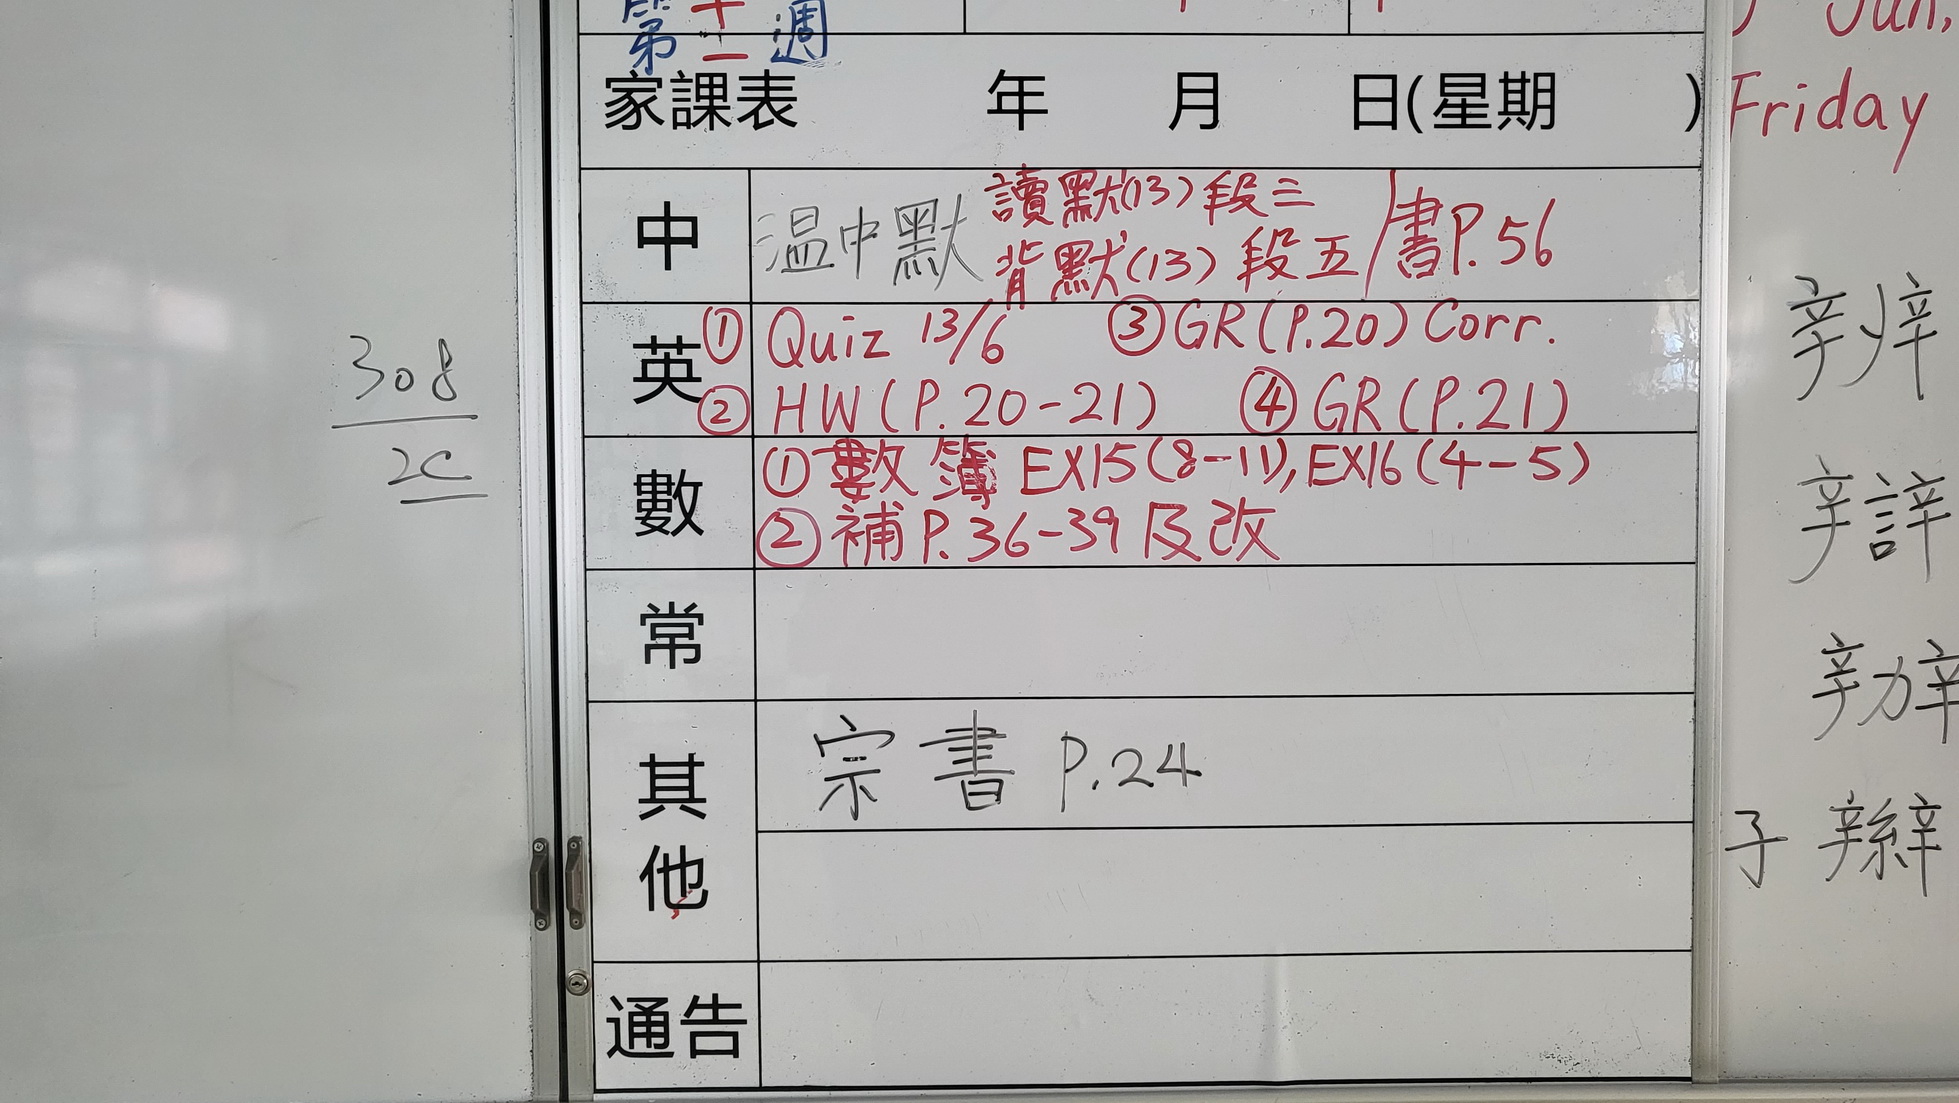 第十一週
家課表 年 月 日(星期 )
中 温中默 讀默(13)段三
背默(13)段五/書P.56
英 ① Quiz 13/6 ③GR(P.20) Corr.
② HW(P.20-21) ④GR(P.21)
數 ①數簿 EX15(8-11), EX16(4-5)
②補P.36-39及改
常
其他 宗書 P.24
通告
308
2C
Jun,
Friday
辨
辯
辦
子 辮